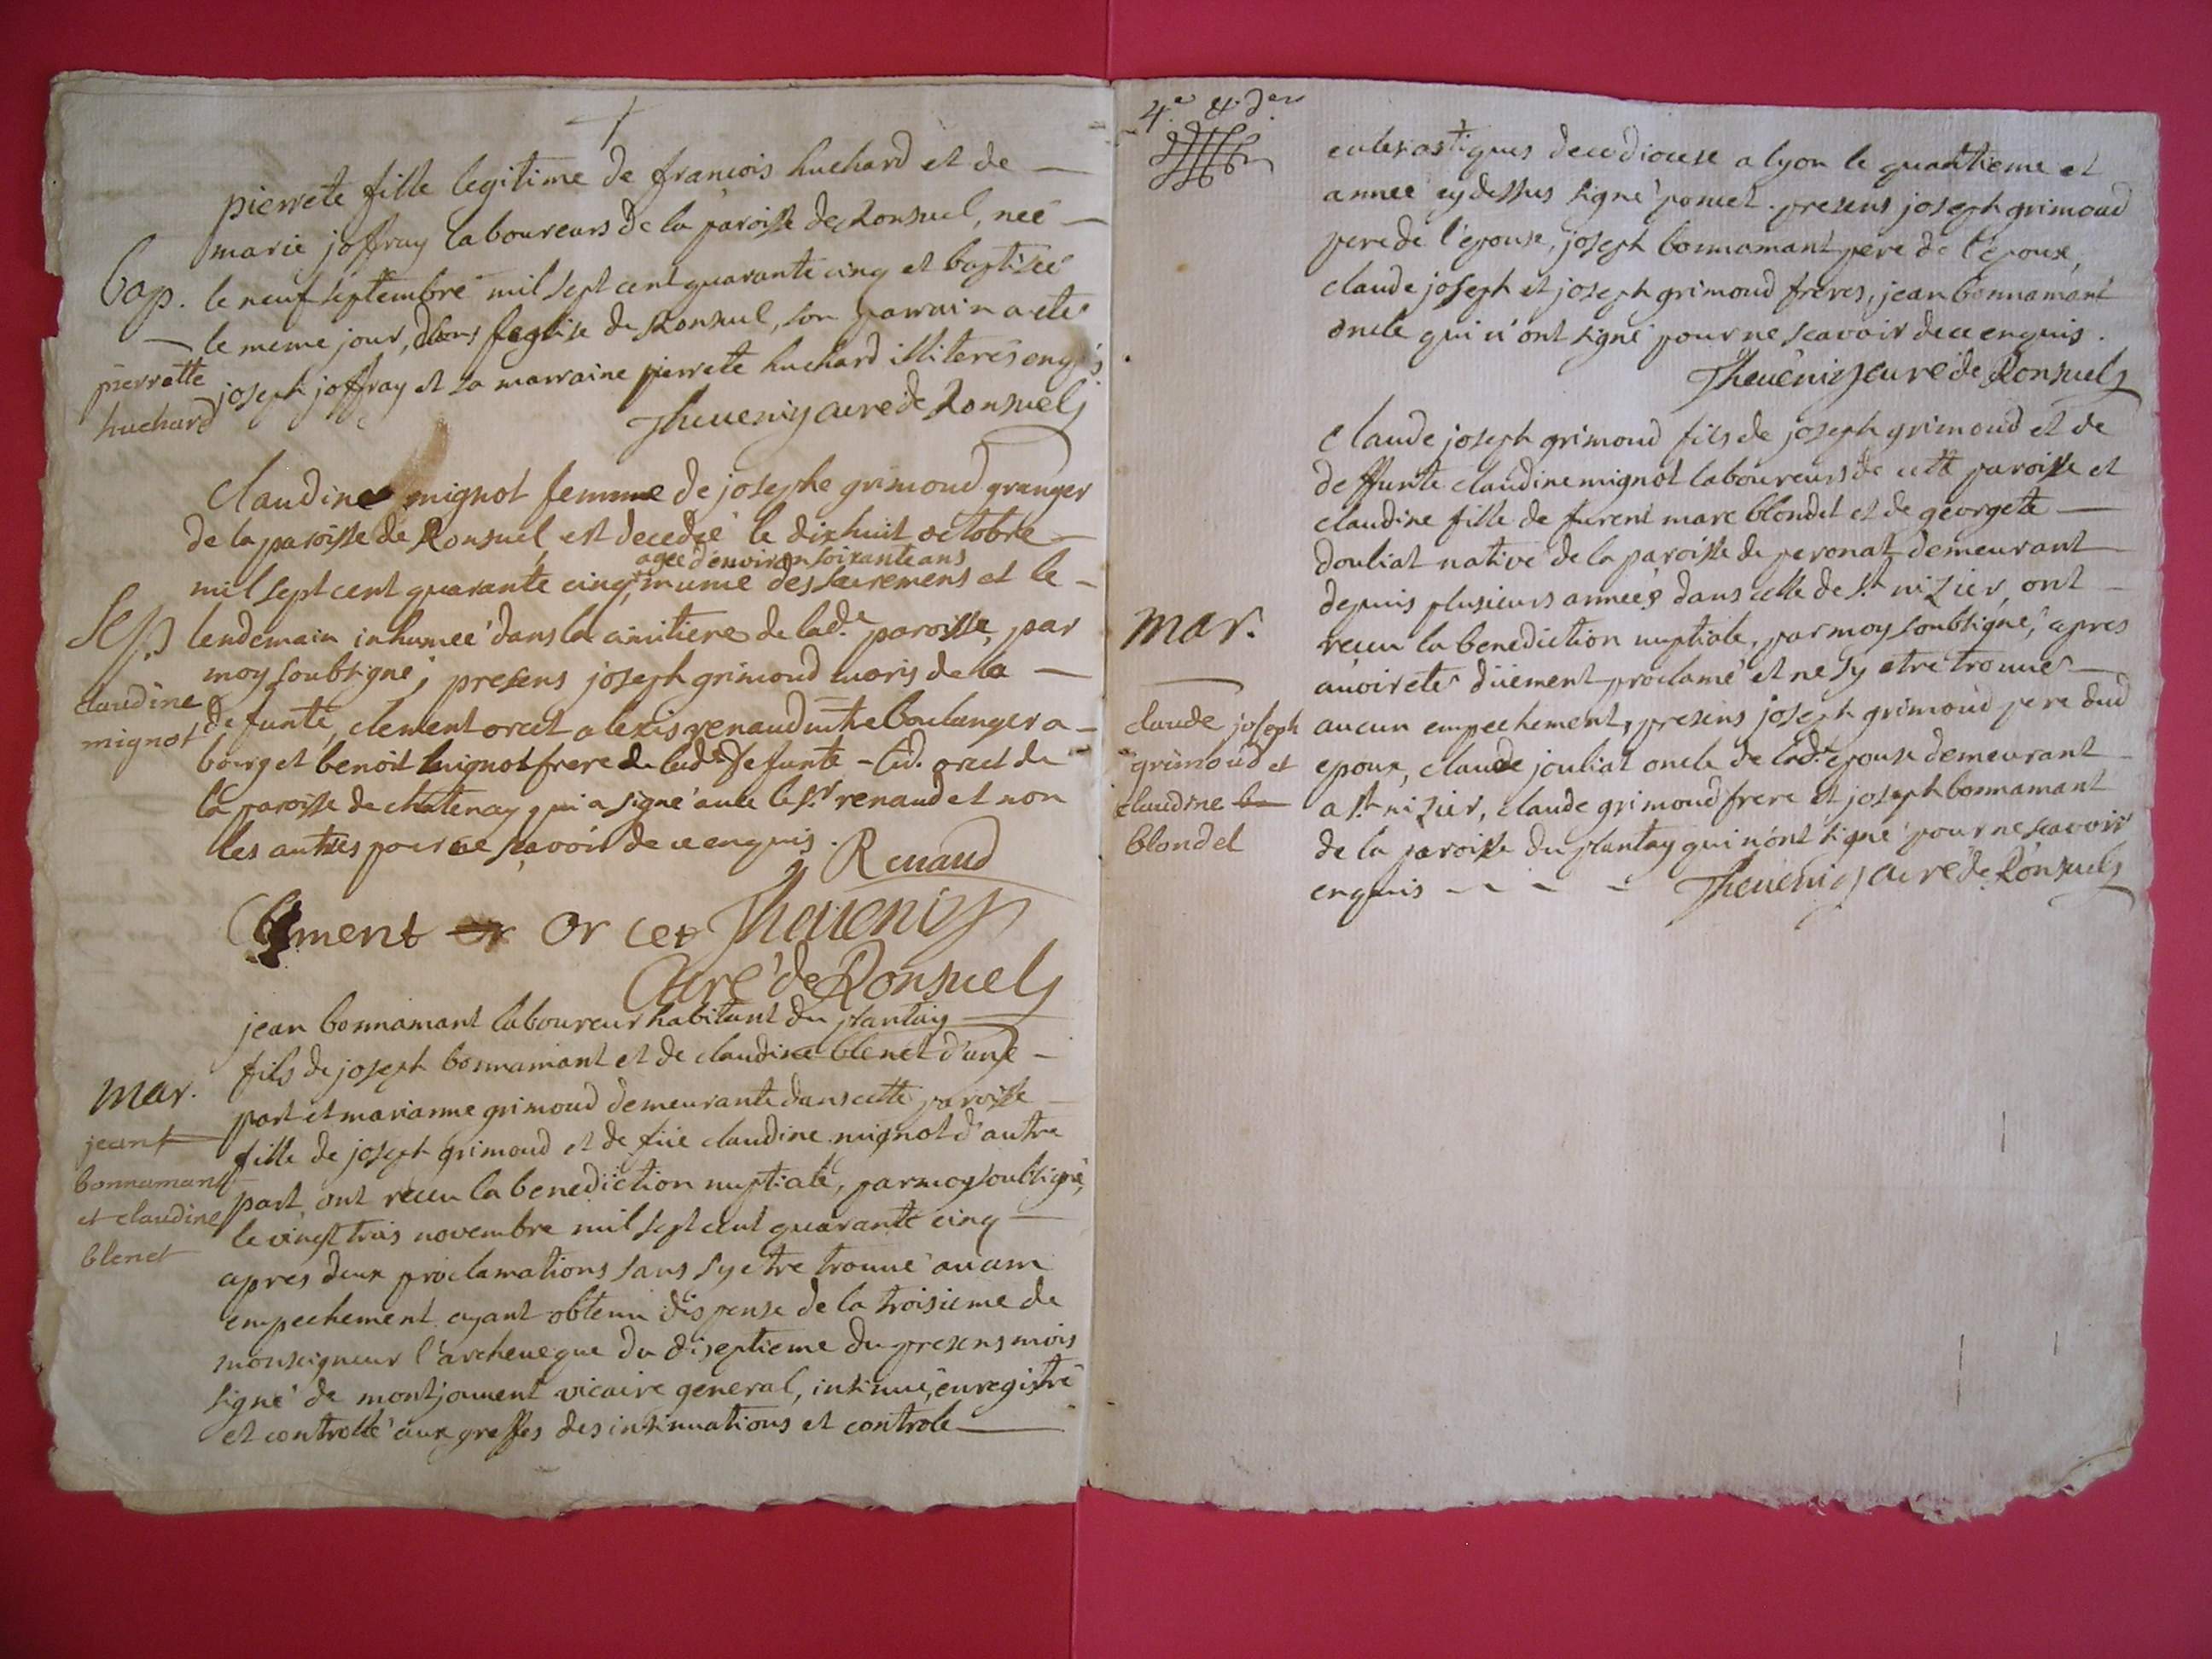 pierrete fille legitime de francois huchard et de
marie joffray laboureurs de la paroisse de Ronsuel, neé
Bap. le neuf septembre mil sept cent quarante cinq et baptisée
le meme jour, dans l'eglise de Ronsuel, son parrain a eté
pierrette huchard
joseph joffray et sa marraine pierrete huchard illiterés enquis
Theuenin curé de Ronsuel
Claudine mignot femme de josephe grimoud granger
de la paroisse de Ronsuel, est decedeé le dix huit octobre
agée d'environ soixante ans
mil sept cent quarante cinq, munie des sacremens et le
Sep. lendemain inhumeé dans la cimitiere de lad.e paroisse, par
moy soubsigné, presens joseph grimoud maris de la
claudine mignot
defunte, clement orcet alexis renaud mtre boulanger a
bourg et benoit mignot frere de lade defunte - led. orcet de
la paroisse de chatenay, qui a signé avec le sr renaud et non
les autres pour ne sçavoir de ce enquis.
Renaud
Clement or Or cet Theuenin
Curé de Ronsuel
jean bonnamant laboureur habitant du plantay
fils de joseph bonnamant et de claudine blenet d'une
mar. part et marianne grimoud demeurante dans cette paroisse
jean bonnamant et claudine blenet
fille de joseph grimoud et de füe claudine mignot d'autre
part, ont receu la benediction nuptiale, par moy soubsigné,
le vingt trois novembre mil sept cent quarante cinq
apres deux proclamations sans s'y etre trouvé aucun
empechement ayant obtenu dispense de la troisieme de
monseigneur l'archeveque du diseptieme du presens mois
signé de montjouvent vicaire general, insinué, enregistré
et controllé aux greffes des insinuations et controle
4.e & der
eclesiastiques de ce diocese a lyon le quantieme et
anneé cy dessus signé poncet. presens joseph grimoud
pere de l'epouse, joseph bonnamant pere de l'epoux,
claude joseph et joseph grimoud freres, jean bonnamant
oncle qui n'ont signé pour ne scavoir de ce enquis.
Theuenin curé de Ronsuel
Claude joseph grimoud fils de joseph grimoud et de
deffunte claudine mignot laboureurs de cette paroisse et
claudine fille de furent marc blondet et de georgete
douliat native de la paroisse de peronat demeurant
depuis plusieurs années dans celle de st nizier, ont
mar. receu la benediction nuptiale, par moy soubsigné, apres
avoir eté düement proclamé et ne s'y etre trouvé
claude joseph grimoud et claudine blondel
aucun empechement, presens joseph grimoud pere dud
epoux, claude jouliat oncle de lad.e epouse demeurant
a st nizier, claude grimoud frere et joseph bonnamant
de la paroisse du plantay qui n'ont signé pour ne scavoir
enquis - - - - Theuenin curé de Ronsuel